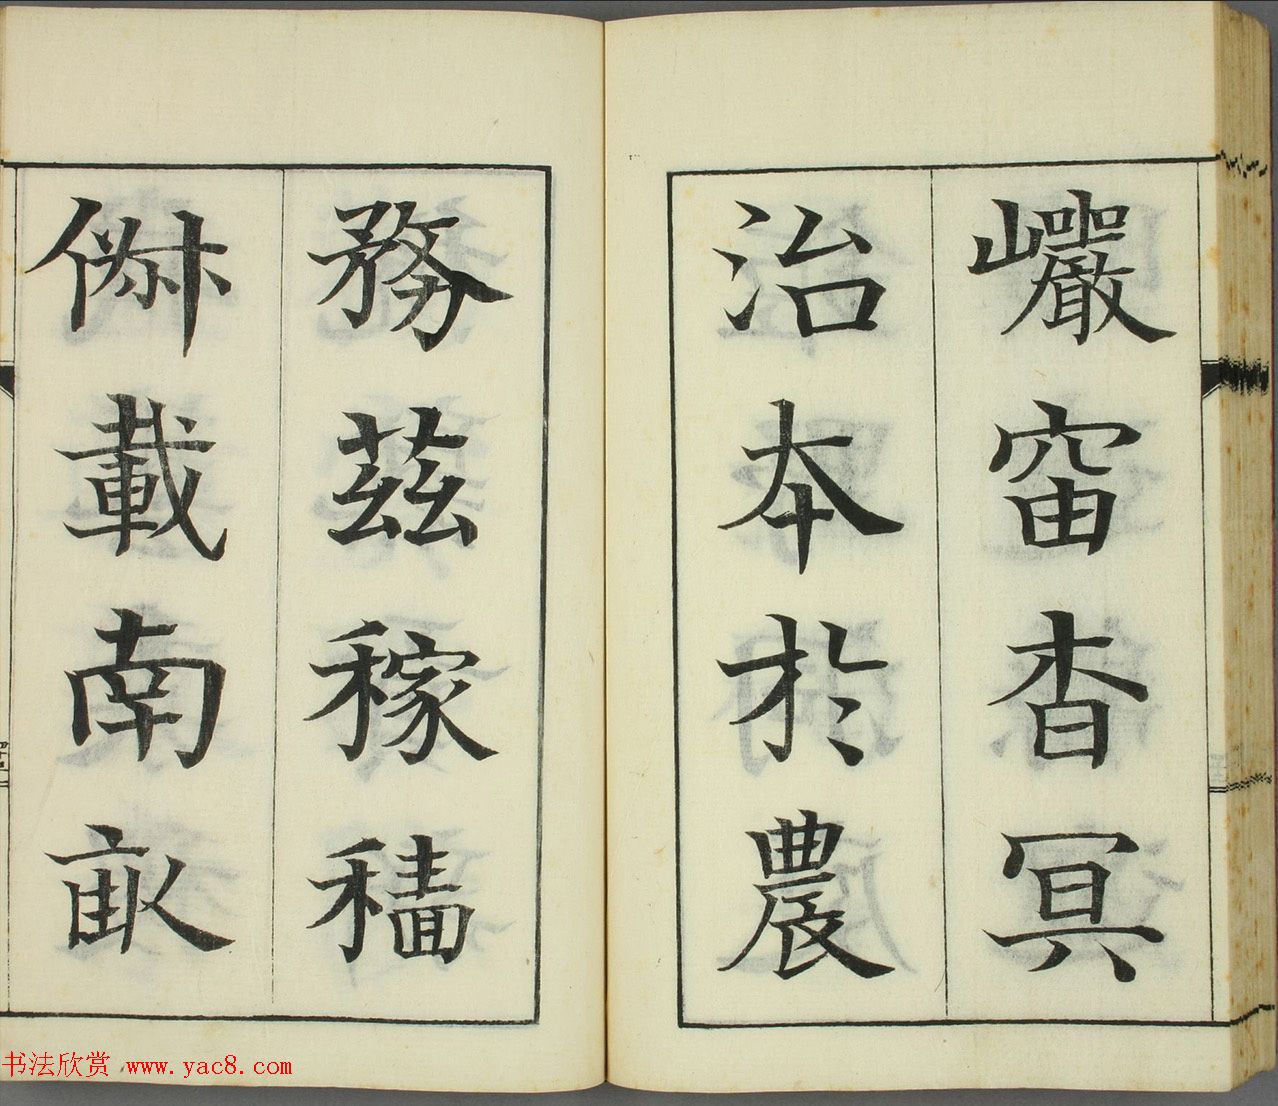 巗窋杳冥
治本於農
務茲稼穡
俶載南畝
書法欣赏 www.yac8.com